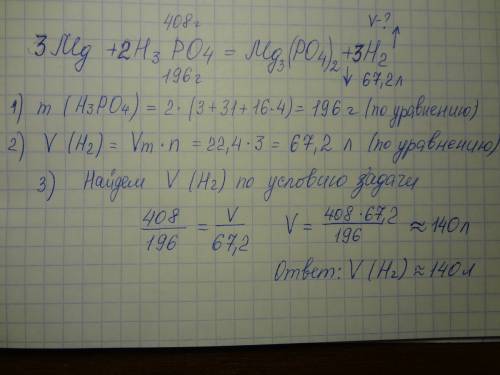 408г V-?
3Mg + 2H3PO4 = Mg3(PO4)2↓ + 3H2↑
196г 67,2л
1) m (H3PO4) = 2·(3+31+16·4) = 196 г (по уравнению)
2) V (H2) = Vm·n = 22,4·3 = 67,2 л (по уравнению)
3) Найдем V (H2) по условию задачи
408/196 = V/67,2 V = 408·67,2/196 ≈ 140л
Ответ: V (H2) ≈ 140л